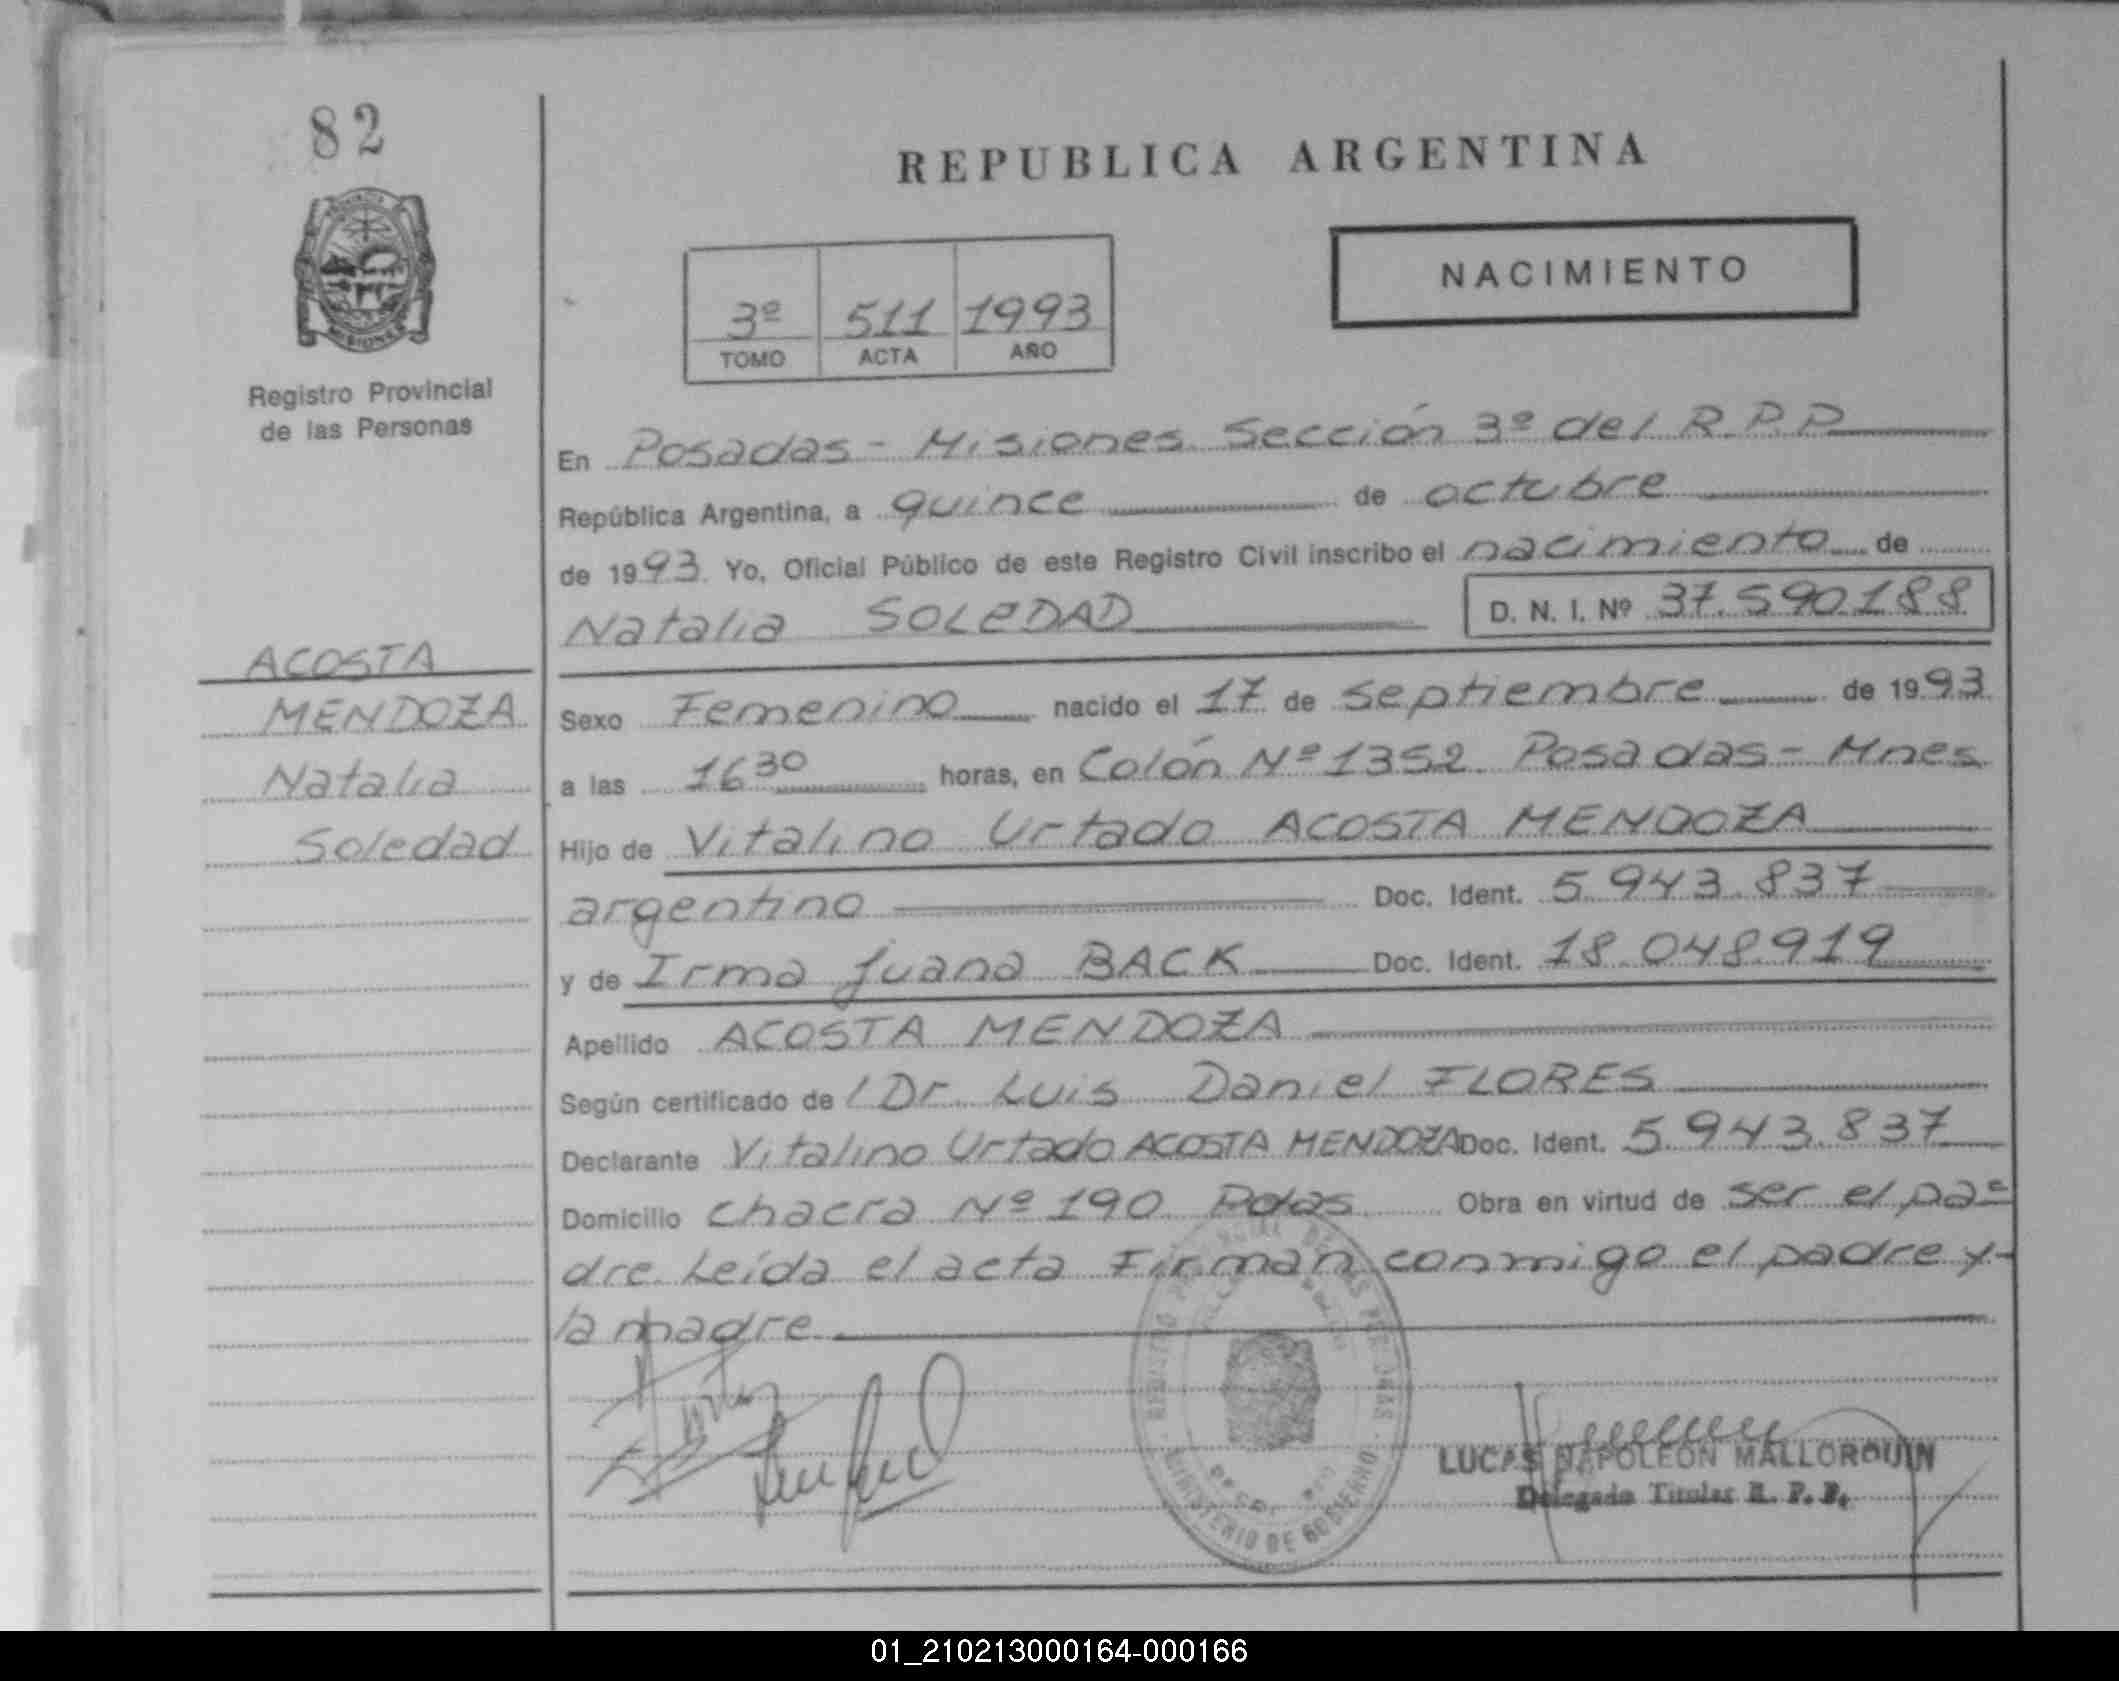 82
REPUBLICA ARGENTINA
NACIMIENTO
3º 511 1993
TOMO ACTA AÑO
MISIONES
Registro Provincial
de las Personas
En Posadas - Misiones Sección 3º del R.P.P
República Argentina, a quince de octubre
de 1993 Yo, Oficial Público de este Registro Civil inscribo el nacimiento de
Natalia SOLEDAD D. N. I. Nº 37.590.188
ACOSTA
MENDOZA
Natalia
Soledad
Sexo Femenino nacido el 17 de septiembre de 1993
a las 16 30 horas, en Colón Nº 1352 Posadas - Mnes
Hijo de Vitalino Urtado ACOSTA MENDOZA
argentino Doc. Ident. 5.943.837
y de Irma Juana BACK Doc. Ident. 18.048.919
Apellido ACOSTA MENDOZA
Según certificado de / Dr. Luis Daniel FLORES
Declarante Vitalino Urtado ACOSTA MENDOZA Doc. Ident. 5.943.837
Domicilio chacra Nº 190 Pdas Obra en virtud de ser el pa=
dre. Leída el acta Firman conmigo el padre y-
la madre
MINISTERIO DE GOBIERNO
LUCAS NAPOLEON MALLORQUIN
Delegado Titular R. P. P.
01_210213000164-000166